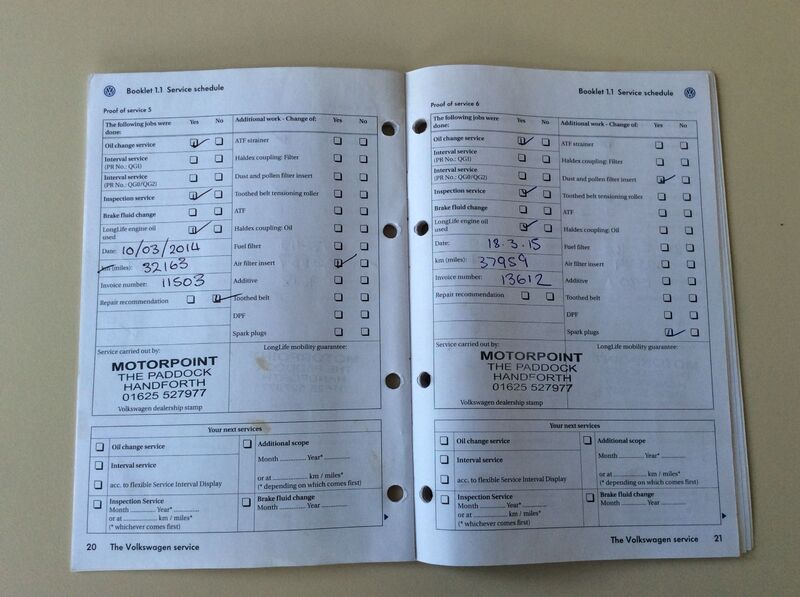 Booklet 1.1 Service schedule
Proof of service 5
The following jobs were done: Yes No
Oil change service
Interval service
(PR No.: QG1)
Interval service
(PR No.: QG0/QG2)
Inspection service
Brake fluid change
LongLife engine oil
used
Date: 10/03/2014
km (miles): 32163
Invoice number: 11503
Repair recommendation
Additional work - Change of: Yes No
ATF strainer
Haldex coupling: Filter
Dust and pollen filter insert
Toothed belt tensioning roller
ATF
Haldex coupling: Oil
Fuel filter
Air filter insert
Additive
Toothed belt
DPF
Spark plugs
Service carried out by:
MOTORPOINT
THE PADDOCK
HANDFORTH
01625 527977
Volkswagen dealership stamp
LongLife mobility guarantee:
Your next services
Oil change service
Interval service
acc. to flexible Service Interval Display
Inspection Service
Month ............ Year* ............
or at ............ km / miles*
(* whichever comes first)
Additional scope
Month ............ Year* ............
or at ............ km / miles*
(* depending on which comes first)
Brake fluid change
Month ............ Year ............
20 The Volkswagen service
Booklet 1.1 Service schedule
Proof of service 6
The following jobs were done: Yes No
Oil change service
Interval service
(PR No.: QG1)
Interval service
(PR No.: QG0/QG2)
Inspection service
Brake fluid change
LongLife engine oil
used
Date: 18.3.15
km (miles): 37959
Invoice number: 13612
Repair recommendation
Additional work - Change of: Yes No
ATF strainer
Haldex coupling: Filter
Dust and pollen filter insert
Toothed belt tensioning roller
ATF
Haldex coupling: Oil
Fuel filter
Air filter insert
Additive
Toothed belt
DPF
Spark plugs
Service carried out by:
MOTORPOINT
THE PADDOCK
HANDFORTH
01625 527977
Volkswagen dealership stamp
LongLife mobility guarantee:
Your next services
Oil change service
Interval service
acc. to flexible Service Interval Display
Inspection Service
Month ............ Year* ............
or at ............ km / miles*
(* whichever comes first)
Additional scope
Month ............ Year* ............
or at ............ km / miles*
(* depending on which comes first)
Brake fluid change
Month ............ Year ............
The Volkswagen service 21